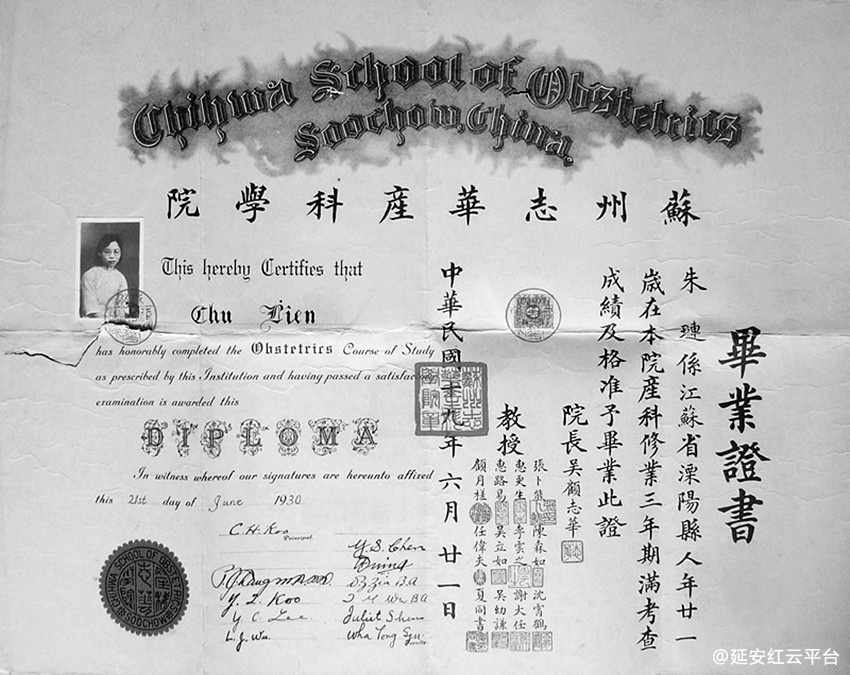 Chihwa School of Obstetrics
Soochow, China.
蘇州志華產科學院
This hereby Certifies that
Chu Lien
has honorably completed the Obstetrics Course of Study
as prescribed by this Institution and having passed a satisfac
examination is awarded this
DIPLOMA
In witness whereof our signatures are hereunto affixed
this 21st day of June 1930
C. H. Koo
Principal
Y. S. Chen
Y. Z. Koo
Y. C. Lee
Juliet Shen
L. J. Wu
CHIHWA SCHOOL OF OBSTETRICS
SOOCHOW
畢業證書
朱璉係江蘇省溧陽縣人年廿一
歲在本院產科修業三年期滿考查
成績及格准予畢業此證
院長吳顧志華
教授
張卜熊 陳森如 沈霄鶴
惠更生 李雲之 謝大任
惠路易 吳立如 吳幼謙
顧月槎 任偉夫 夏同書
中華民國十九年六月廿一日
@延安红云平台